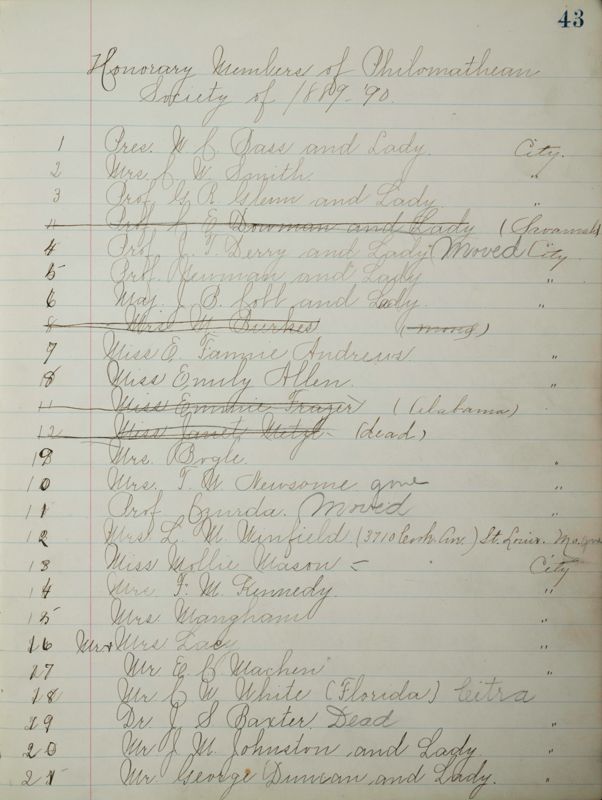 43
Honorary Members of Philomathean
Society of 1889-'90.
1 Pres. W C Bass and Lady. City.
2 Mrs. C W. Smith. "
3 Prof G R Glenn and Lady "
Prof. E Dowman and Lady (Savannah
4 Prof J. T. Derry and Lady Moved City
5 Prof. Newman and Lady
6 Maj. J. B. Cobb and Lady. "
8 Miss M. Burkes
7 Miss E. Fannie Andrews "
8 Miss Emily Allen. "
11 Miss Emmie Frazer (Alabama)
12 Miss Janet (dead)
9 Mrs. Bogle. "
10 Mrs. F. W Newsome gone "
11 Prof. Czurda. Moved "
12 Mrs L. M. Winfield (3710 Cook Av.) St. Louis. Mo. gone
13 Miss Mollie Mason - City
14 Mrs F. M. Kennedy. "
15 Mrs. Mangham "
16 Mr & Mrs Lacy "
17 Mr E C Machen "
18 Mr C W White (Florida) Citra
19 Dr J S Baxter. Dead "
20 Mr J. M. Johnston and Lady. "
21 Mr. George Duncan and Lady. "